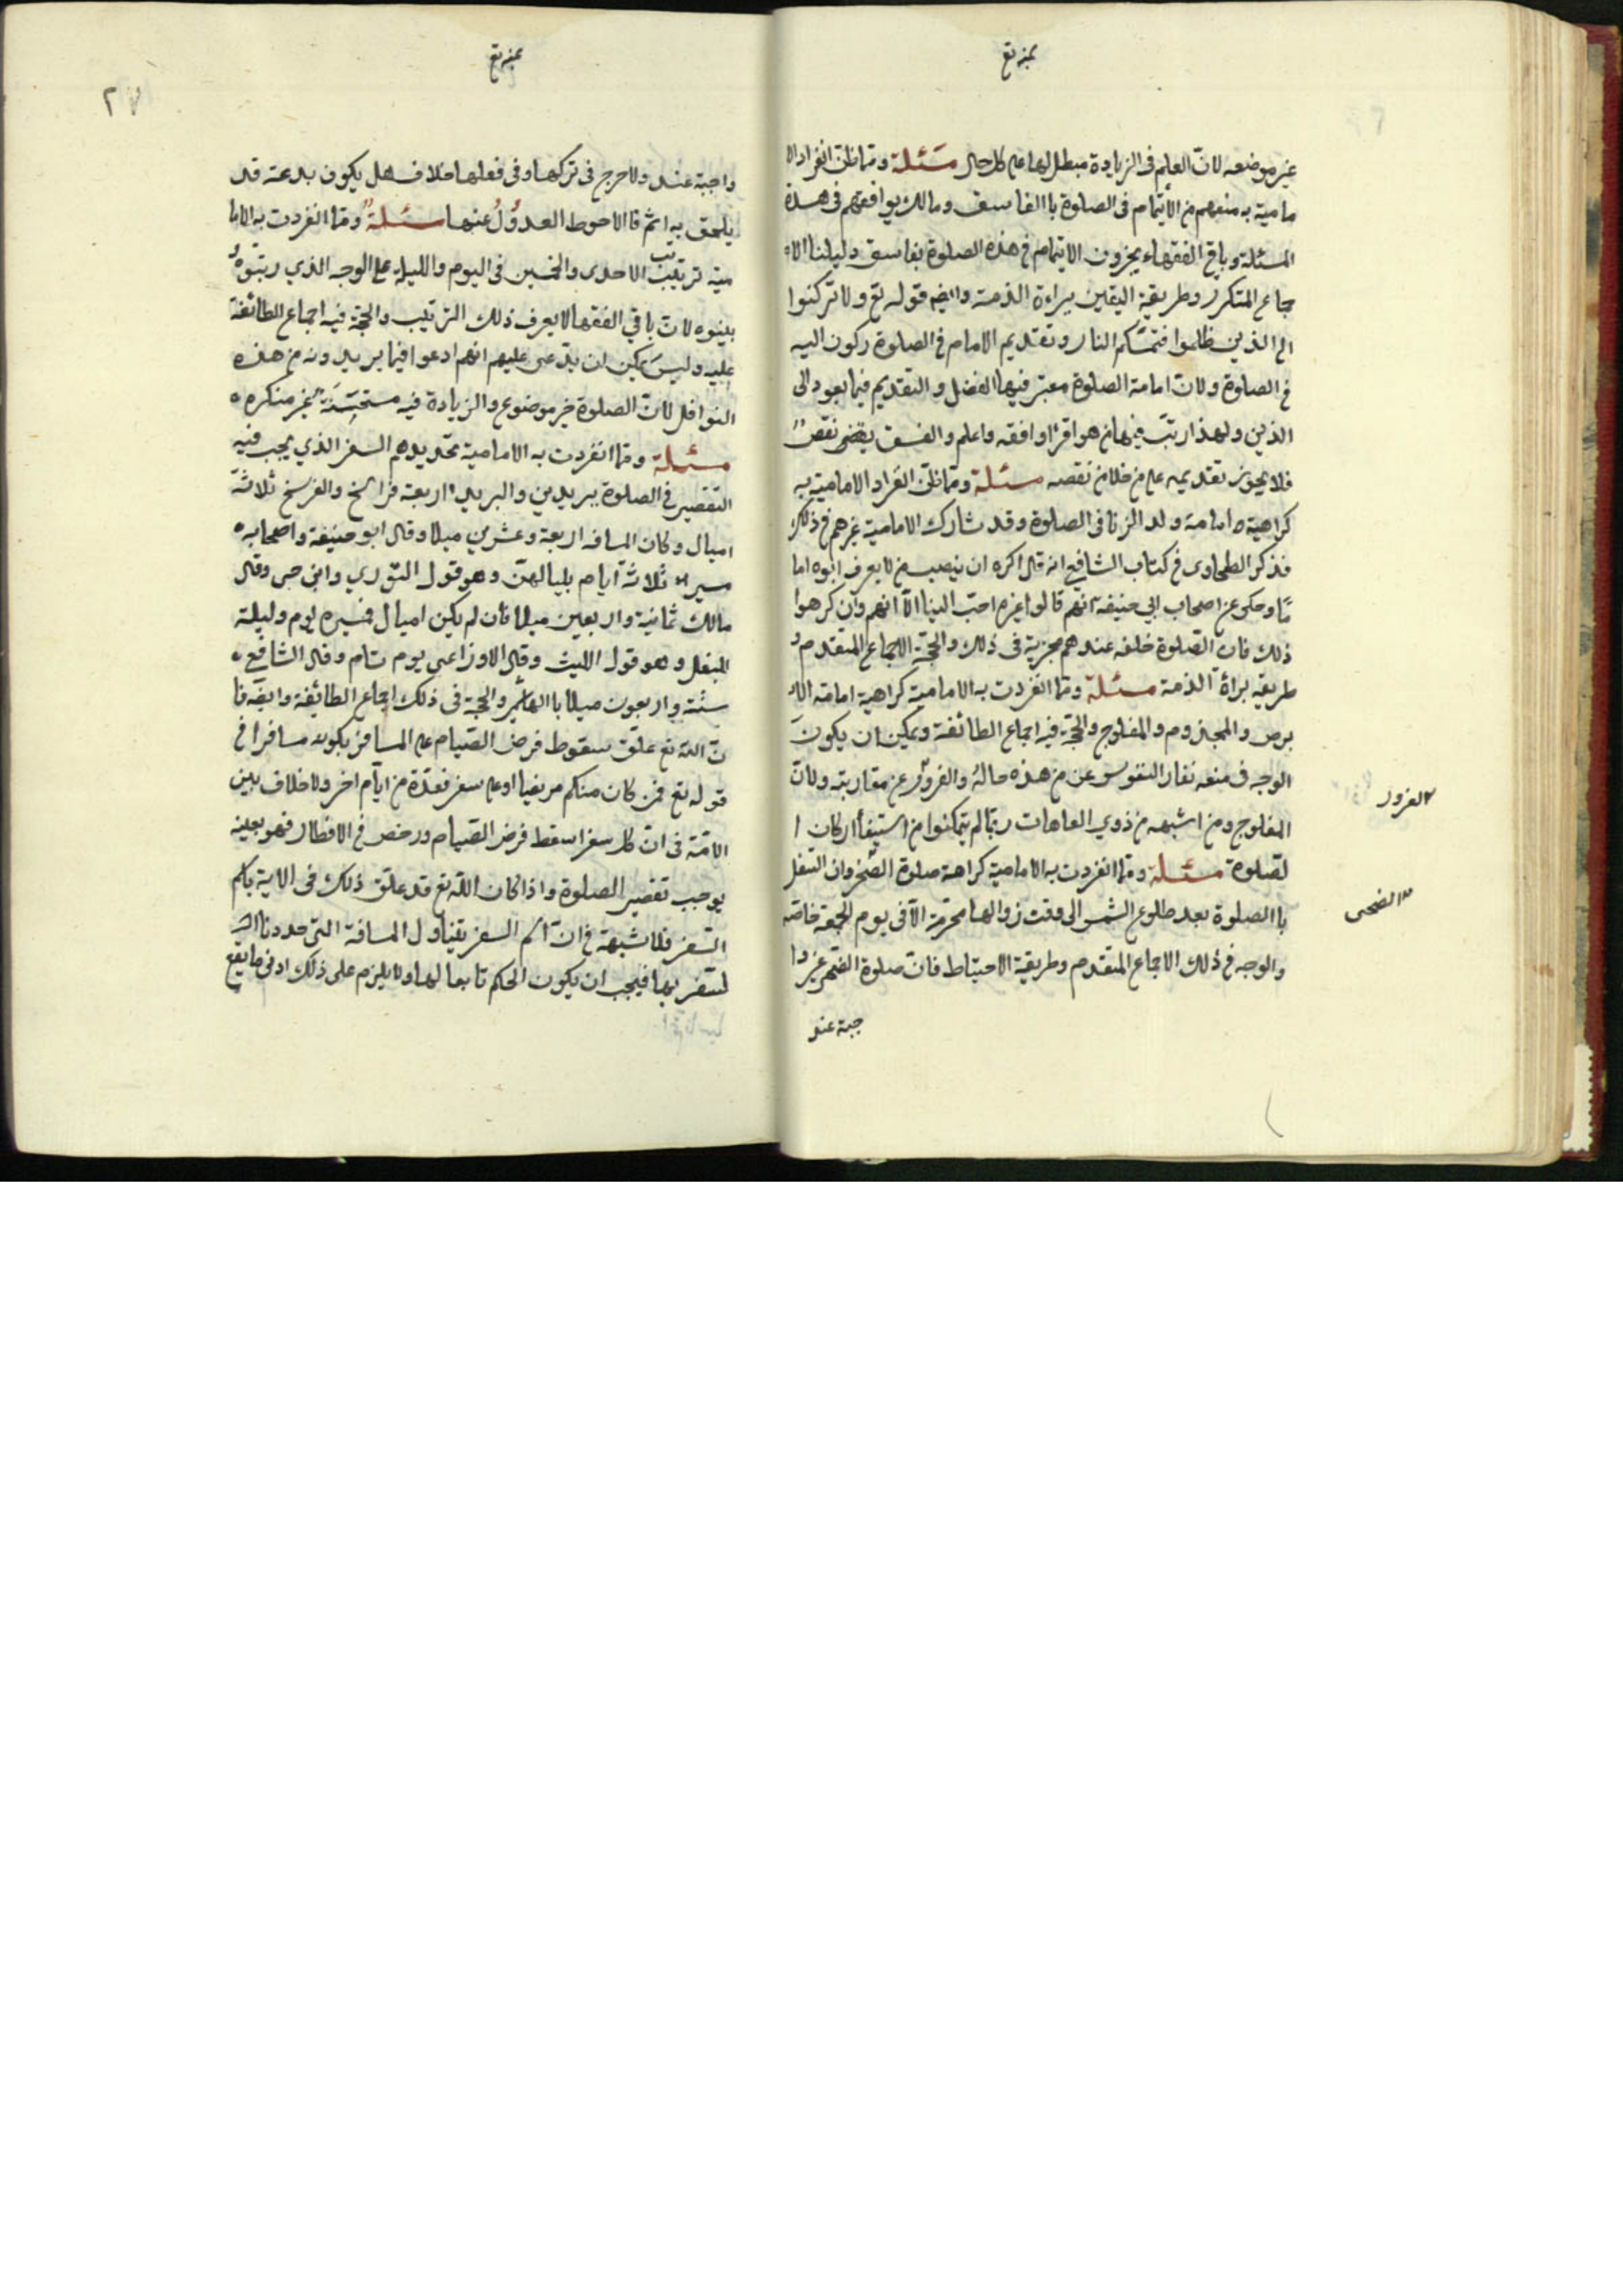 غير موضعه لانّ العلم فى الزيادة مبطل لها على كل حال مسَئلة وممّا ظن انفراد الا
مامية به منعهم من الأيتمام فى الصلوة باالفاسف ومالك يوافقهم فى هذه
المسئلة وباقى الفقهاء يجزون الايتمام فى هذه الصلوة بفاسق دليلنا الا
جماع المتكرر وطريقة اليقين ببراءة الذمة وايضا قوله تع ولا تركنوا
الى الذين ظلموا فتمسّكم النار وتقديم الامام فى الصلوة ركون اليه
فى الصلوة ولانّ امامة الصلوة معتبر فيها الفضل والتقديم فيما يعود الى
الدّين ولهذا رتبّ فيها من هو اقرا وافقه واعلم والفسق يقضى نقصً
فلا يجوز تقديمه على من خلا من نقصه مسئلة وممّا ظن انفراد الامامية به
كراهية امامة ولد الزنا فى الصلوة وقد شارك الامامية غيرهم فى ذلك
فذكر الطحاوى فى كتاب الشافعى انه قال اكره ان ينصب من لا يعرف ابوه اما
مًا وحكى عن اصحاب ابي حنيفة انهم قالوا غيره احبّ الينا الّا انهم وان كرهوا
ذلك فان الصّلوة خلفه عندهم مجزية فى ذلك والحجّة الاجماع المتقدم و
طريقة براأة الذمة مسئلة وممّا انفردت به الامامية كراهية امامة الا
برص والمجذوم والمفلوج والحجّة فيه اجماع الطائفة ويمكن ان يكونَ
الوجه فى منعه نفار النفوس عن من هذه حالهُ والفرور عن مقاربته ولانّ
المفلوج ومن اشبهه من ذوي العاهات ربّما لم يتمكنوا من استيفأ اركان ا
لصّلوة مسئلة وممّا انفردت به الامامية كراهة صلوة الضّحى وان التنفل
باالصلوة بعد طلوع الشمس الى وقت زوالها محرّمة الّا فى يوم الجمعة خاصّه
والوجه فى ذلك الاجماع المتقدم وطريقة الاحتياط فانّ صلوة الضّحى غير وا
جبة عند
العزور
الضحى
٢٧
واجبة عند ولا حرج فى تركها وفى فعلها خلاف هل يكون بدعة قد
يلحق به اثم فا الاحوط العدوُلُ عنها مسئلةً وممّا انفردت به الاما
مية ترتيب الاحدى والخمسين فى اليوم والليلة على الوجه الذي رتّبوهُ
بينوه لانّ باقي الفقها لا يعرف ذلك الترتيب والحجّة فيه اجماع الطائفة
عليه وليسَ يمكن ان يدّعى عليهم انهم ادعوا فيما يريدونه من هذه
النوافل لانّ الصلوة خير موضوع والزيادة فيه مستحسَنَة غير منكره
مسئلة وممّا انفردت به الامامية تحديدهم السفر الذي يجب فيه
التقصير فى الصلوة ببريدين والبريد اربعة فراسخ والفرسخ ثلاثة
اميال وكان المسافة اربعة وعشرين ميلا وقال ابو حنيفة واصحابه
مسيرة ثلاثة ايام بلياليهنّ وهو قول الثّوري وابن حى وقال
مالك ثمانية واربعين ميلا فان لم يكن اميال فمسيره يوم وليلة
للبغل وهو قول الليث وقال الاوزاعى يوم تام وقال الشافعى
ستّة واربعون ميلا باالهاشمى والحجّة فى ذلك اجماع الطائفة وايضا فا
نّ اللّه تع علّق سقوط فرض الصّيام على المسافر بكونه مسافرا فى
قوله تع فمن كان منكم مريضا او على سفر فعدّة من ايّام اخر ولا خلاف بين
الامّة فى انّ كل سفر اسقط فرض الصّيام ورخص فى الافطار فهو بعينه
يوجب تقصير الصلوة واذا كان اللّه تع قد علّق ذلك فى الاية باسم
السّفر فلا شبهة فى انّ اسم السفر يتناول المسافة التى حددنا
لسّفر بها فيجب ان يكون الحكم تابعا لها ولا يلزم على ذلك ادنى ما يقع